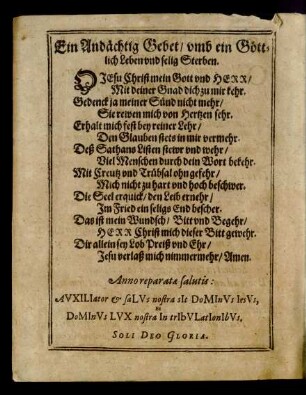 Ein Andächtig Gebet / vmb ein Gött-
lich Leben vnd selig Sterben.
O JEsu Christ mein Gott vnd HERR /
Mit deiner Gnad dich zu mir kehr.
Gedenck ja meiner Sünd nicht mehr /
Sie rewen mich von Hertzen sehr.
Erhalt mich fest bey reiner Lehr /
Den Glauben stets in mir vermehr.
Deß Sathans Listen stewr vnd wehr /
Viel Menschen durch dein Wort bekehr.
Mit Creutz vnd Trübsal ohn gefehr /
Mich nicht zu hart vnd hoch beschwer.
Die Seel erquick / den Leib ernehr /
Im Fried ein seligs End bescher.
Das ist mein Wundsch / Bitt vnd Begehr /
HERR Christ mich dieser Bitt gewehr.
Dir allein sey Lob Preiß vnd Ehr /
Jesu verlaß mich nimmermehr / Amen.
Anno reparatæ salutis:
AVXILIator & saLVs nostra sIt DoMInVs IesVs,
DoMInVs LVX nostra In trIbVLatIonIbVs.
SOLI DEO GLORIA.